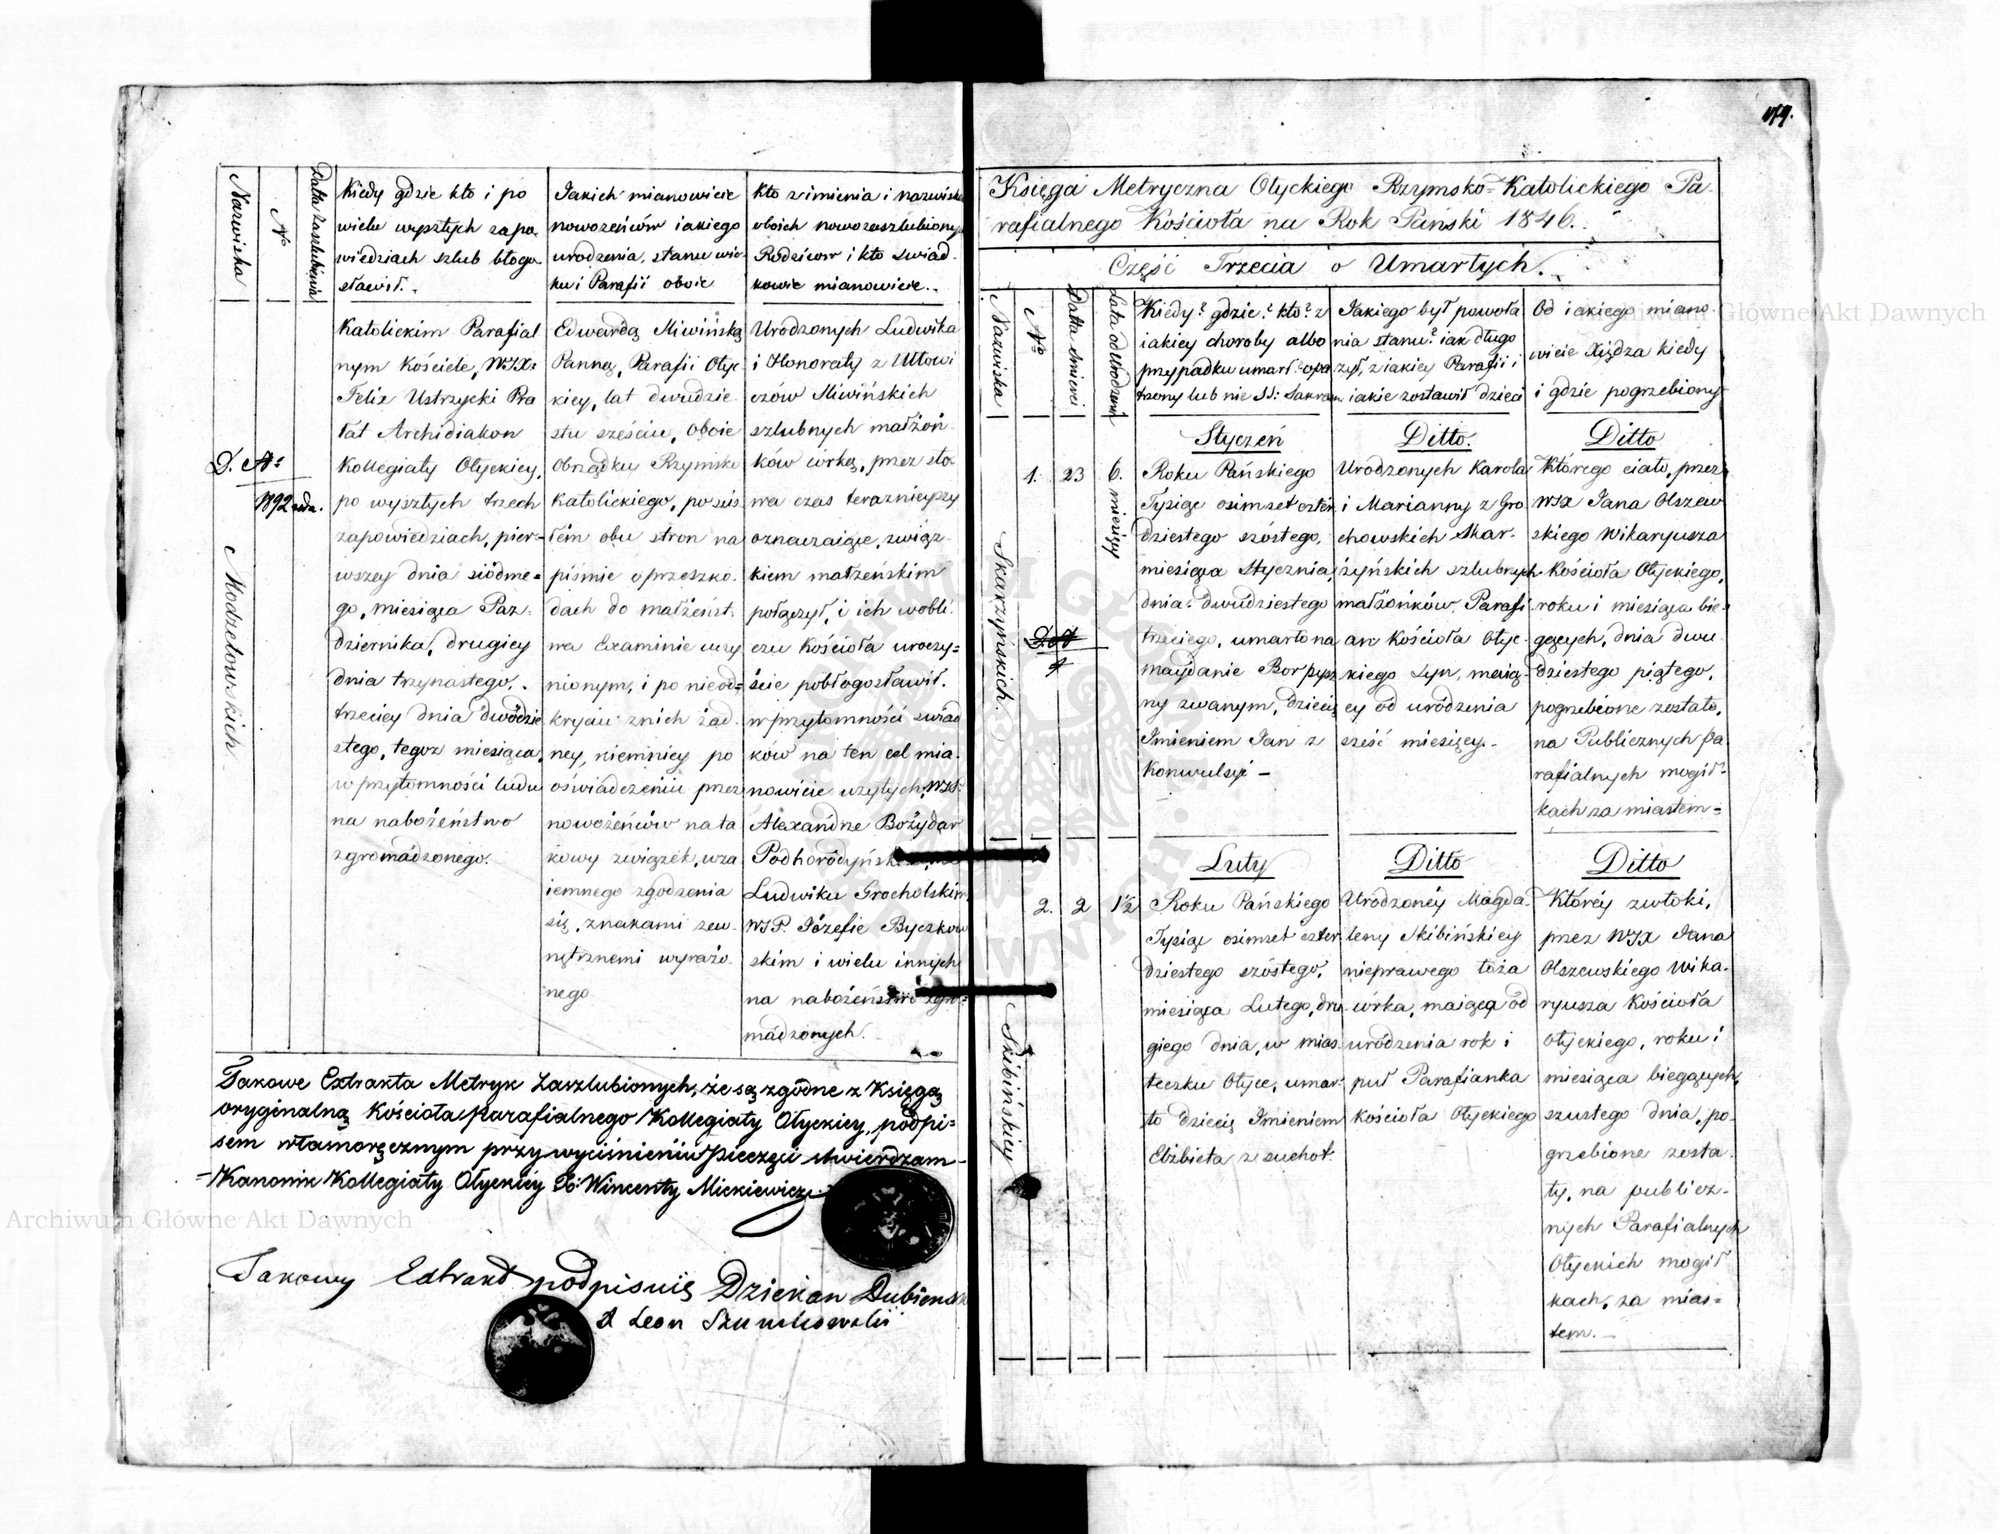 Nazwiska
N°
Datta zaszlubienia
Kiedy gdzie kto i po
wielu wyszłych zapo
wiedziach szlub błogo
sławił.
Jakich mianowicie
nowozeńców iakiego
urodzenia, stanu wie
ku i Parafii oboie
Kto z imienia i nazwiska
oboich nowozaszlubionych
Rodziców i kto swiad
kowie mianowicie.
D. A:
1892
Modzelowskich
Katolickim Parafial
nym Kościele, WJX:
Felix Ustrzycki Pra
łat Archidiakon
Kollegiaty Ołyckiey,
po wyszłych trzech
zapowiedziach, pier-
wszey dnia siódme-
go, miesiąca Paz-
dziernika, drugiey
dnia trzynastego,
trzeciey dnia dwódzie
stego, tegoz miesiąca,
w przytomności ludu
na nabożeństwo
zgromádzonego.
Edwardą Sliwińską
Panną, Parafii Ołyc
kiey, lat dwudzie-
stu sześciu, oboie
obrządku Rzymsko
Katolickiego, po
łem obu stron na
piśmie o przeszko-
dach do małżeńst-
wa Examinie uczy
nionym, i po nieod-
kryciu znich żad-
ney, niemniey po
oświadczeniu przez
nowożeńców na ta
kowy związek, wza
iemnego zgodzenia
się, znakami zew-
nętrznemi wyrażo-
nego
Urodzonych Ludwika
i Honoraty z
czów Sliwińskich
szlubnych małżon-
ków córką, przez sło-
wa czas teraznieyszy
oznaczaiące, związ-
kiem małżeńskim
połączył, i ich w obli-
czu Kościoła uroczy-
ście pobłogosławił.
w przytomności swiad
ków na ten cel mia-
nowicie uzytych, WJP:
Alexandrze Bożydar
Ludwiku Grocholskim,
WJP. Józefie Byczkow
skim i wielu innych
na nabożeństwo zgro-
mádzonych.
Takowe Extrakta Metryk Zaszlubionych, że są zgodne z Księgą
oryginalną Kościoła Parafialnego Kollegiaty Ołyckiey, podpi-
sem własnoręcznym przy wyciśnieniu Pieczęci stwierdzam-
Kanonik Kollegiaty Ołyckiey X: Wincenty Mickiewicz.
Takowy Extrakt podpisuię Dziekan Dubienski
X Leon
Księga Metryczna Ołyckiego Rzymsko-Katolickiego Pa-
rafialnego Kościoła na Rok Pański 1846.
Część Trzecia o Umarłych.
Nazwiska
N°
Datta śmierci
Lata od Urodzenia
Kiedy? gdzie? kto? z
iakiey choroby albo
przypadku umarł opa
trzony lub nie SS: Sakram
Jakiego był powoła
nia stanu? iak długo
żył, z iakiey Parafii i
iakie zostawił dzieci
Od iakiego miano
wicie Xiędza kiedy
i gdzie pogrzebiony
Skarzyńskich.
1.
23
6. miesięcy
Styczeń
Roku Pańskiego
Tysiąc osimset czter
dziestego szóstego,
miesiąca Stycznia,
dnia dwudziestego
trzeciego, umarło na
maydanie Borpysz
ny zwanym, dziecię
Imieniem Jan z
Konwulsyi –
Ditto.
Urodzonych Karola
i Marianny z Gro
chowskich Skar-
żyńskich szlubnych
małżonków, Parafi
an Kościoła Ołyc-
kiego Syn, maią-
cy od urodzenia
sześć miesięcy.
Ditto
Którego ciało, przez
WJX Jana Olszew
skiego Wikaryusza
Kościoła Ołyckiego,
roku i miesiąca bie-
gących, dnia dwu-
dziestego piątego,
pogrzebione zostało,
na Publicznych Pa
rafialnych mogił-
kach za miastem-
Skibińskiey
2.
2
1½
Luty
Roku Pańskiego
Tysiąc osimset czter
dziestego szóstego,
miesiąca Lutego, dru
giego dnia, w mias
teczku Ołyce, umar-
ło dziecię Imieniem
Elżbieta z suchot.
Ditto
Urodzoney Magda-
leny Skibińskiey
nieprawego łoża
córka, maiąca od
urodzenia rok i
puł Parafianka
Kościoła Ołyckiego
Ditto
Którey zwłoki,
przez WJX Jana
Olszewskiego Wika-
ryusza Kościoła
Ołyckiego, roku i
miesiąca biegących,
szustego dnia, po-
grzebione zosta-
ły, na publicz-
nych Parafialnych
Ołyckich mogił
kach, za mias-
tem.
Archiwum Główne Akt Dawnych
Archiwum Główne Akt Dawnych